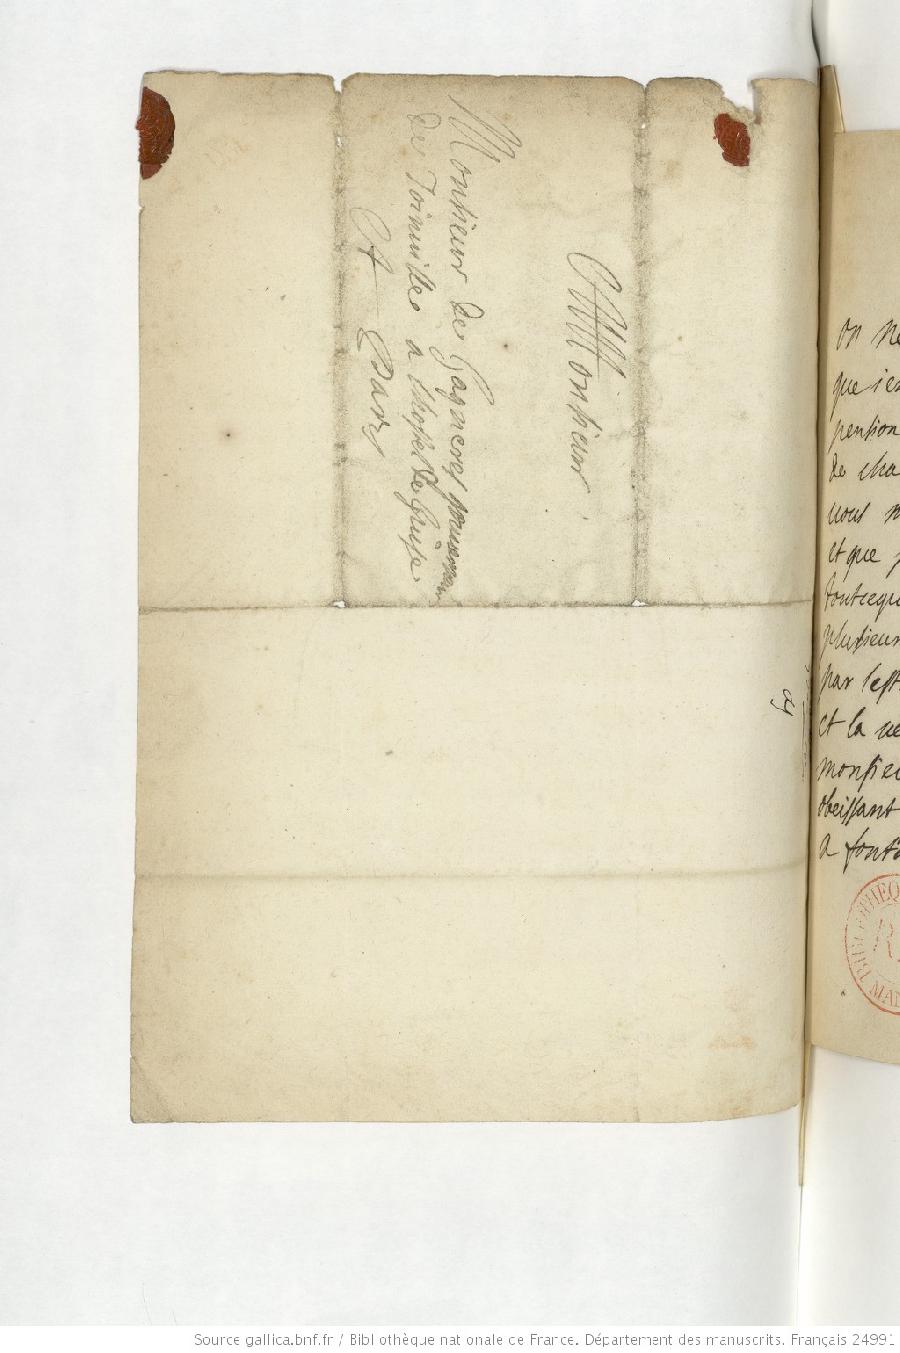 Monsieur
Monsieur de Gagneres gouuerneur
de Joinuille a lhostel de Guise
A Paris
on ne
que ie
pension
de cha
vous
et que
toutcequ
plusieur
par lest
et la ve
monsieu
obeissant
a fonta
BIBLIOTHEQ
MA
Source gallica.bnf.fr / Bibliothèque nationale de France. Département des manuscrits. Français 24991